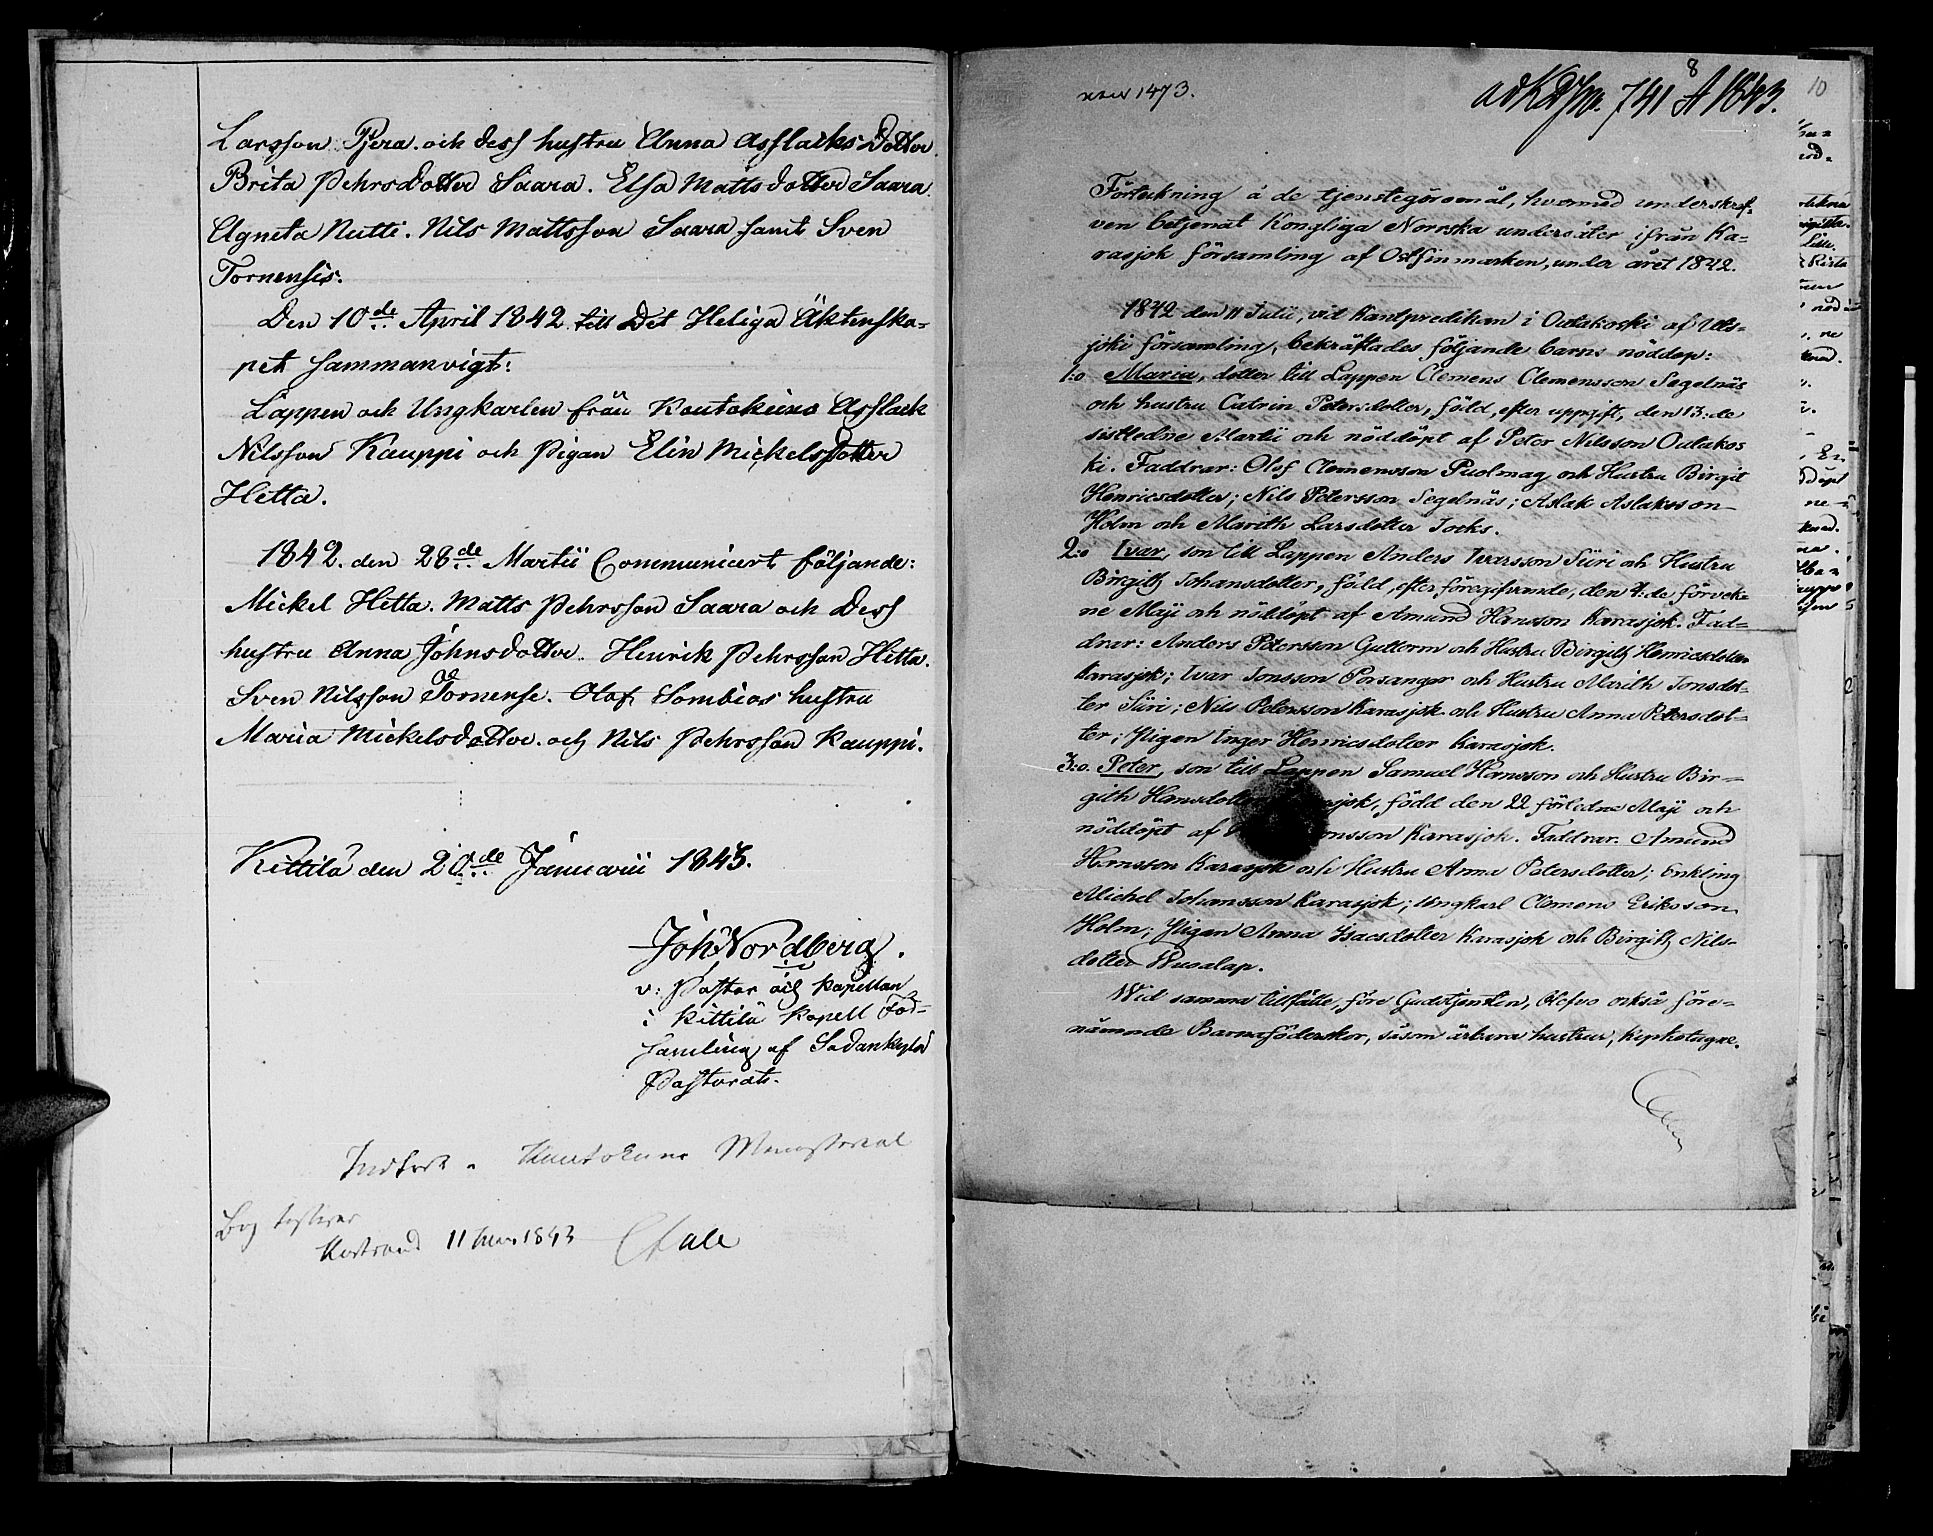 Larsson Pjera. och dess hustru Anna Asslacks Dotter
Brita Pehrsdotter Saara. Elsa Mattsdotter Saara
Agneta Nutti. Nils Mattsson Saara samt Sven
Tornensis.
Den 10de April 1842 till Det Heliga Äktenska-
pet sammanvigt:
Lappen och Ungkarlen från Koutokeino Asslack
Nilsson Kauppi och Pigan Elin MickelsDotter
Hetta.
1842. den 28de Martii Communicert följande:
Mickel Hetta. Matts Pehrsson Saara och Dess
hustru Anna JohnsDotter. Henrik Pehrsson Hetta.
Sven Nilsson Tornense. Olof Sombios hustru
Maria MickelsDotter. och Nils Pehrsson Kauppi.
Kittilä den 20de Januarii 1843.
Joh: Nordberg.
v: Pastor och Kapellan
i Kittilä Kapell För-
samling af Sodankylä
Pastorat.
Indført i Kautokeino Ministerial
Bog testerer
Kistrand 11 1843
8
10
1473.
ad 741 A 1843.
Förteckning å de tjenstegöromål, hvarmed underskref-
ven betjenat Kongliga Norrska undersåter ifrån Ka-
rasjok församling af Ostfinmarken, under året 1842.
1842 den 11 Julii, vid Kantpredikan i Outakoski af Uts-
joki församling, bekräftades följande barns nöddop:
1:o Maria, dotter till Lappen Clemens Clemensson Segelnäs
och hustru Catrin Petersdotter, född, efter uppgift, den 13:de
sistledne Martii och nöddöpt af Peter Nilsson Outakos
ki. Faddrar: Olof Clemensson Puolmag och Hustru Birgit
Henricsdotter; Nils Petersson Segelnäs; Aslak Aslaksson
Holm och Marith Larsdotter Jocks.
2:o Ivar, son till Lappen Anders Ivarsson Siiri och Hustru
Birgith Johansdotter, född, efter föregifvande, den 4:de förvek-
ne Maji och nöddöpt af Amund Hansson Karasjok. Fad-
drar: Anders Petersson Guttorm och Hustru Birgith Henricsdotter
Karasjok; Ivar Jonsson Porsanger och Hustru Marith Jonsdot-
ter Siiri; Nils Petersson Karasjok och Hustru Anna Petersdot-
ter; Pigan Inger Henricsdotter Karasjok.
3:o. Peter, son till Lappen Samuel Hansson och Hustru Bir-
gith Hansdotter Karasjok, född den 22 förledne Maji och
nöddöpt af Karasjok. Faddrar. Amund
Hansson Karasjok och Hustru Anna Petersdotter; Enkling
Michel Johansson Karasjok; ungkarl Clemens Eriksson
Holm; Pigan Anna Isacsdotter Karasjok och Birgith Nils-
dotter
Wid samma tillfälle, före Gudstjensten, blefvo också före-
nämnde Barnaföderskor, såsom ärbara hustrur, kyrkotagne.